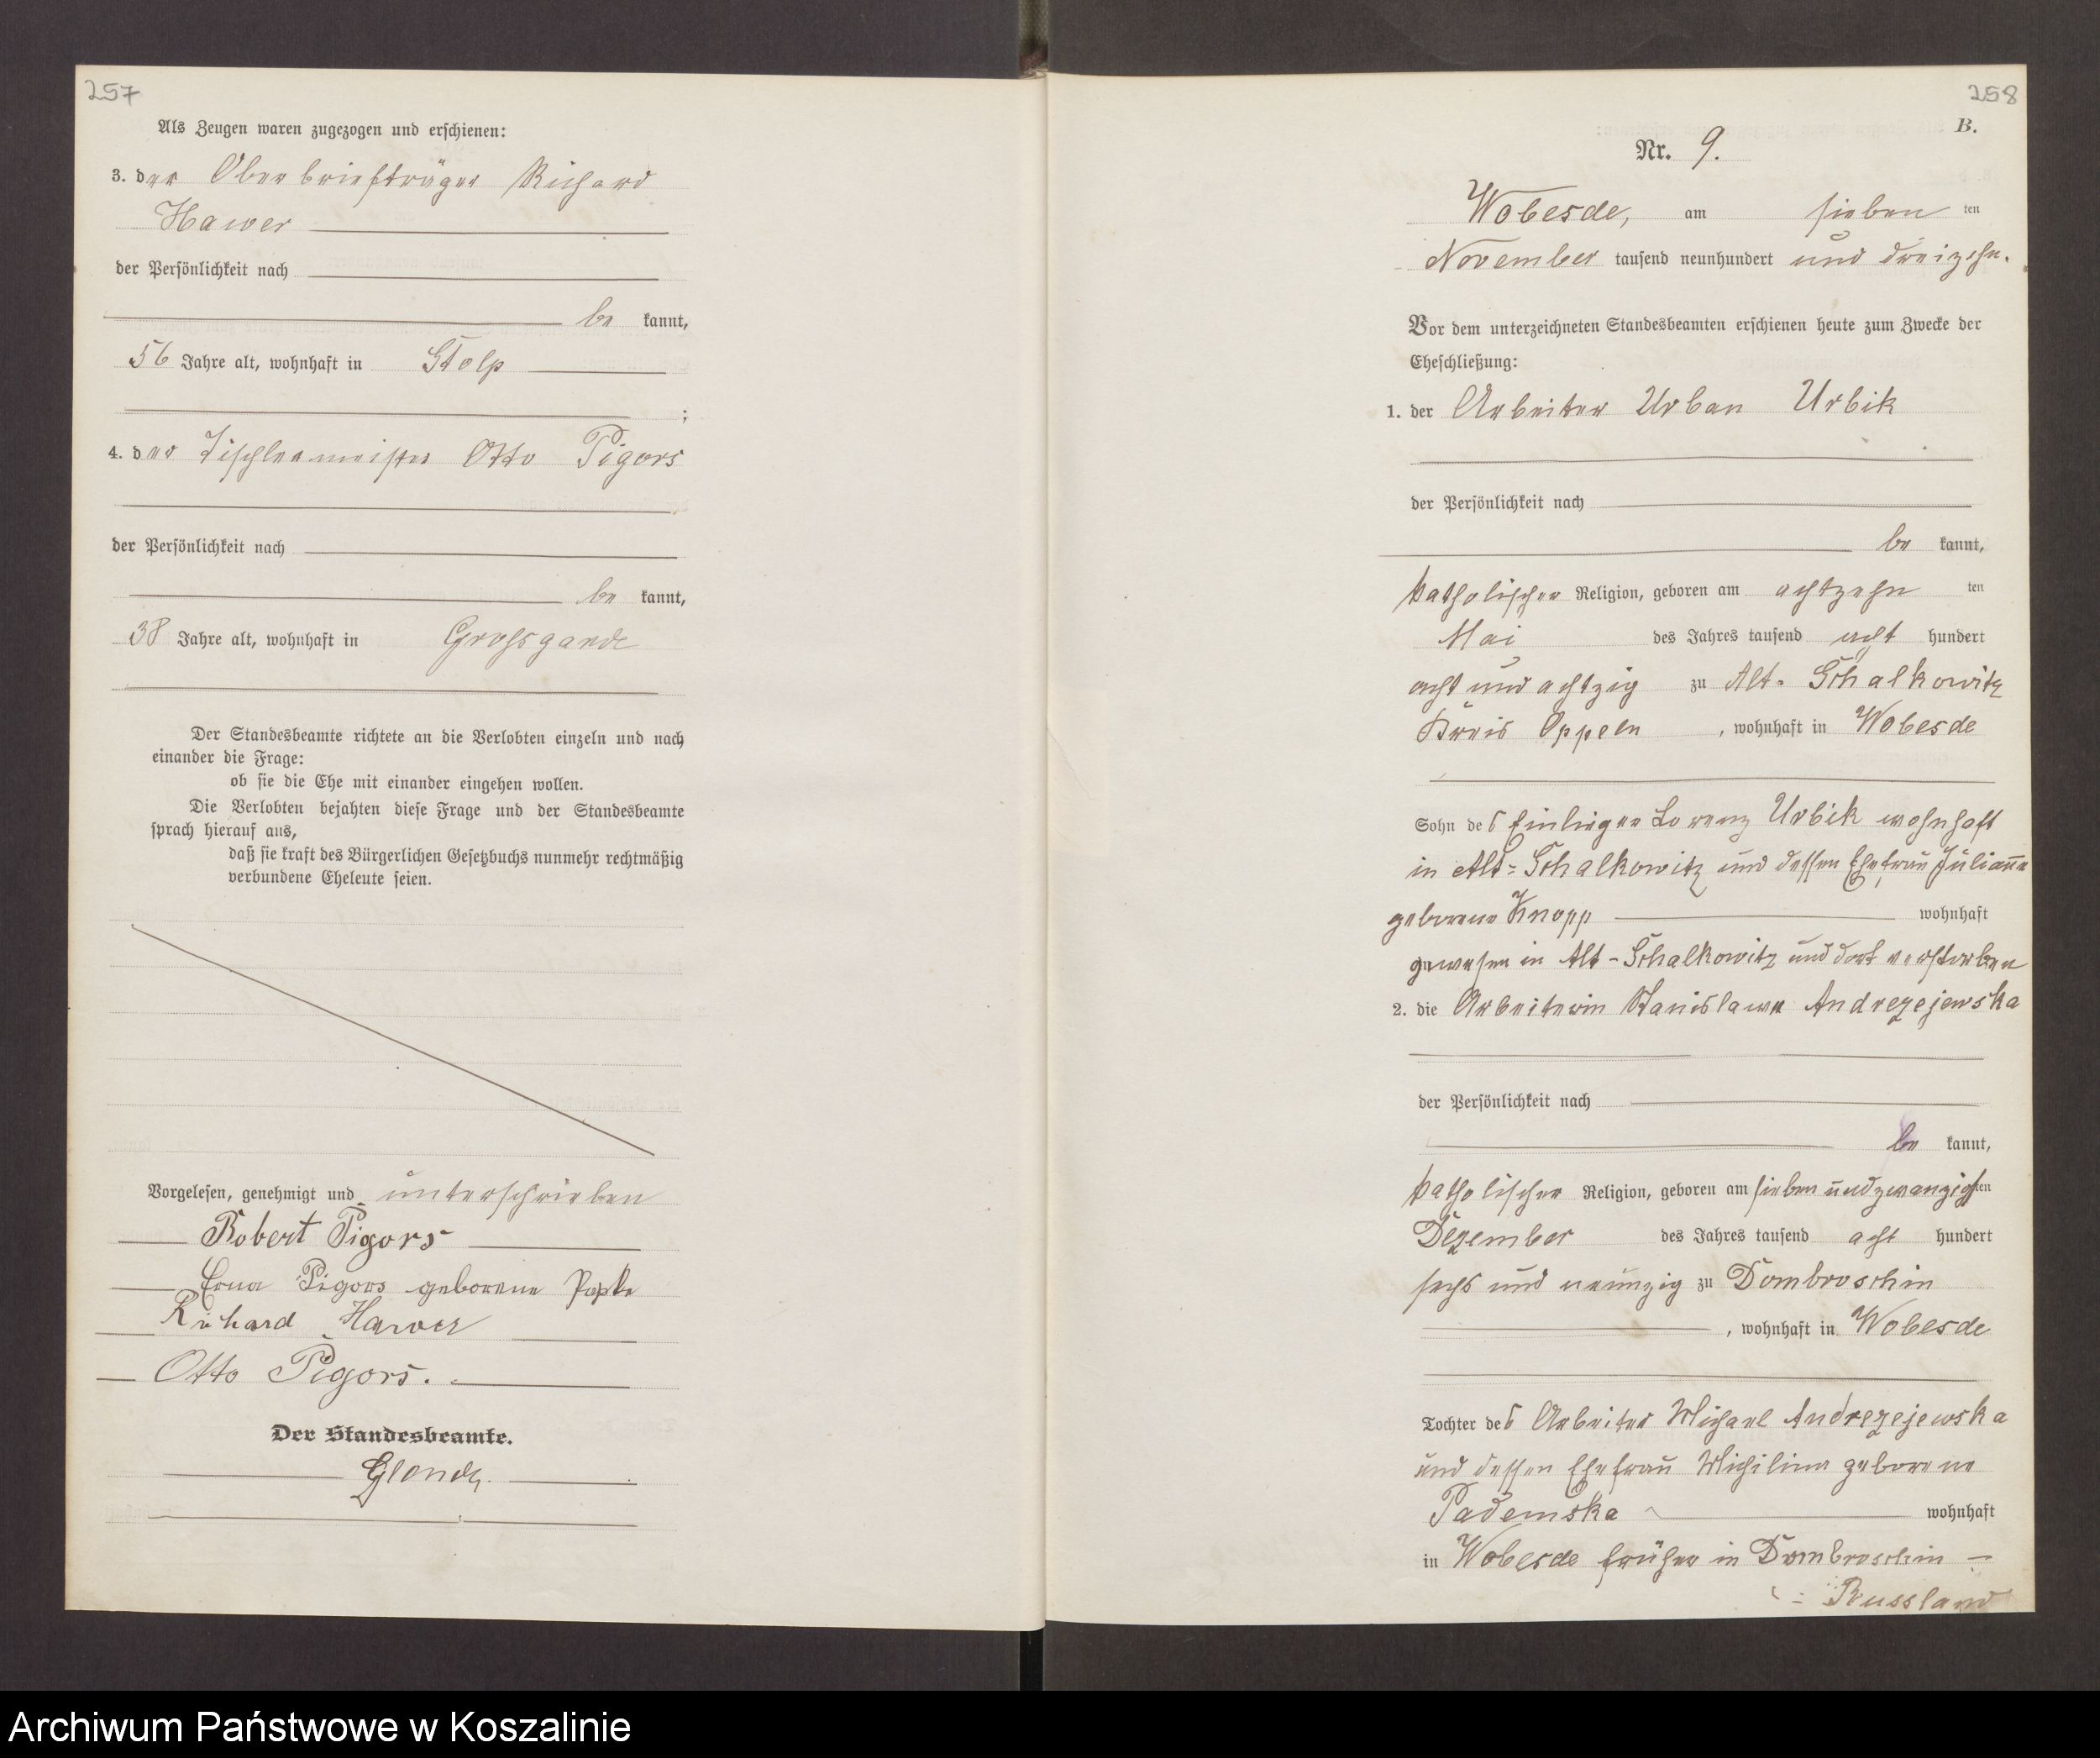 257
Als Zeugen waren zugezogen und erschienen:
3. der Oberbriefträger Richard
Hawer
der Persönlichkeit nach
be kannt,
56 Jahre alt, wohnhaft in Stolp
;
4. der Tischlermeister Otto Pigors
der Persönlichkeit nach
be kannt,
38 Jahre alt, wohnhaft in Grossgarde
Der Standesbeamte richtete an die Verlobten einzeln und nach
einander die Frage:
ob sie die Ehe mit einander eingehen wollen.
Die Verlobten bejahten diese Frage und der Standesbeamte
sprach hierauf aus,
daß sie kraft des Bürgerlichen Gesetzbuchs nunmehr rechtmäßig
verbundene Eheleute seien.
Vorgelesen, genehmigt und unterschrieben
Robert Pigors
Erna Pigors geborene Papke
Richard Hawer
Otto Pigors.
Der Standesbeamte.
258
B.
Nr. 9.
Wobesde, am sieben ten
November tausend neunhundert und dreizehn.
Vor dem unterzeichneten Standesbeamten erschienen heute zum Zwecke der
Eheschließung:
1. der Arbeiter Urban Urbik
der Persönlichkeit nach
be kannt,
katholischer Religion, geboren am achtzehn ten
Mai des Jahres tausend acht hundert
acht und achtzig zu Alt-Schalkowitz
Kreis Oppeln, wohnhaft in Wobesde
Sohn des Einlieger Lorenz Urbik wohnhaft
in Alt-Schalkowitz und dessen Ehefrau Julianne
geborene Knopp wohnhaft
gewesen in Alt-Schalkowitz und dort verstorben
2. die Arbeiterin Stanislawa Andrezejewska
der Persönlichkeit nach
be kannt,
katholischer Religion, geboren am sieben und zwanzigsten
Dezember des Jahres tausend acht hundert
sechs und neunzig zu Dombroschin
, wohnhaft in Wobesde
Tochter des Arbeiter Michael Andrezejewska
und dessen Ehefrau Michilina geborene
Pademska wohnhaft
in Wobesde früher in Dombroschin -
Russland
Archiwum Państwowe w Koszalinie